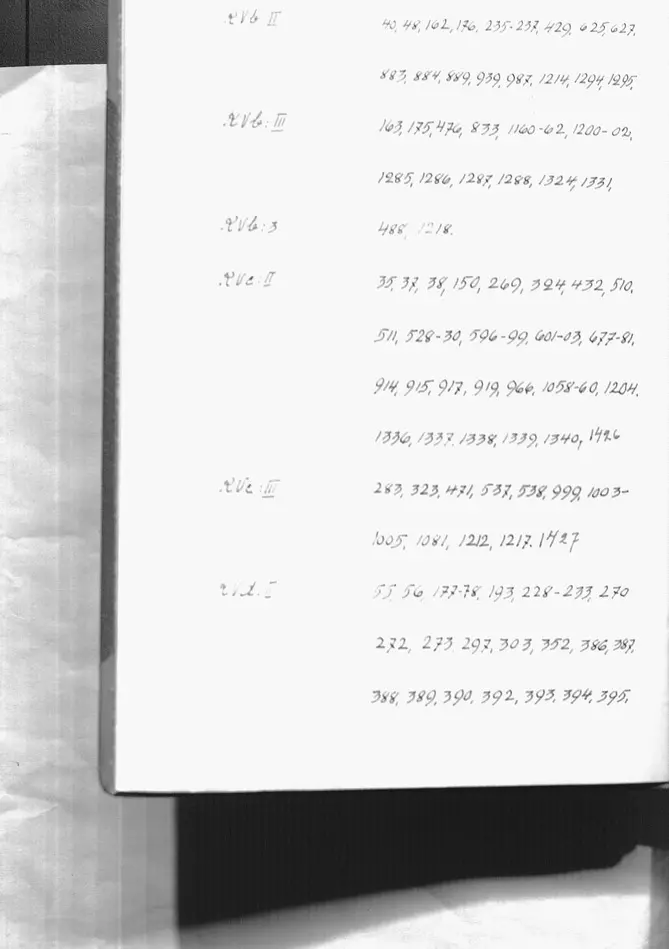 XVb II 40, 48, 162, 176, 235-237, 429, 625, 627,
883, 884, 889, 939, 987, 1214, 1294, 1295,
XVb:III 163, 175, 476, 833, 1160-62, 1200-02,
1285, 1286, 1287, 1288, 1324, 1331,
XVb:3 488, 1218.
XVc:II 35, 37, 38, 150, 269, 324, 432, 510,
511, 528-30, 596-99, 601-03, 677-81,
914, 915, 917, 919, 966, 1058-60, 1204.
1336, 1337. 1338, 1339, 1340, 1426
XVc:III 283, 323, 471, 537, 538, 999, 1003-
1005, 1081, 1212, 1217. 1427
XVd:I 55, 56, 177-78, 193, 228-233, 270
272, 273. 297, 303, 352, 386, 387,
388, 389, 390, 392, 393, 394, 395,